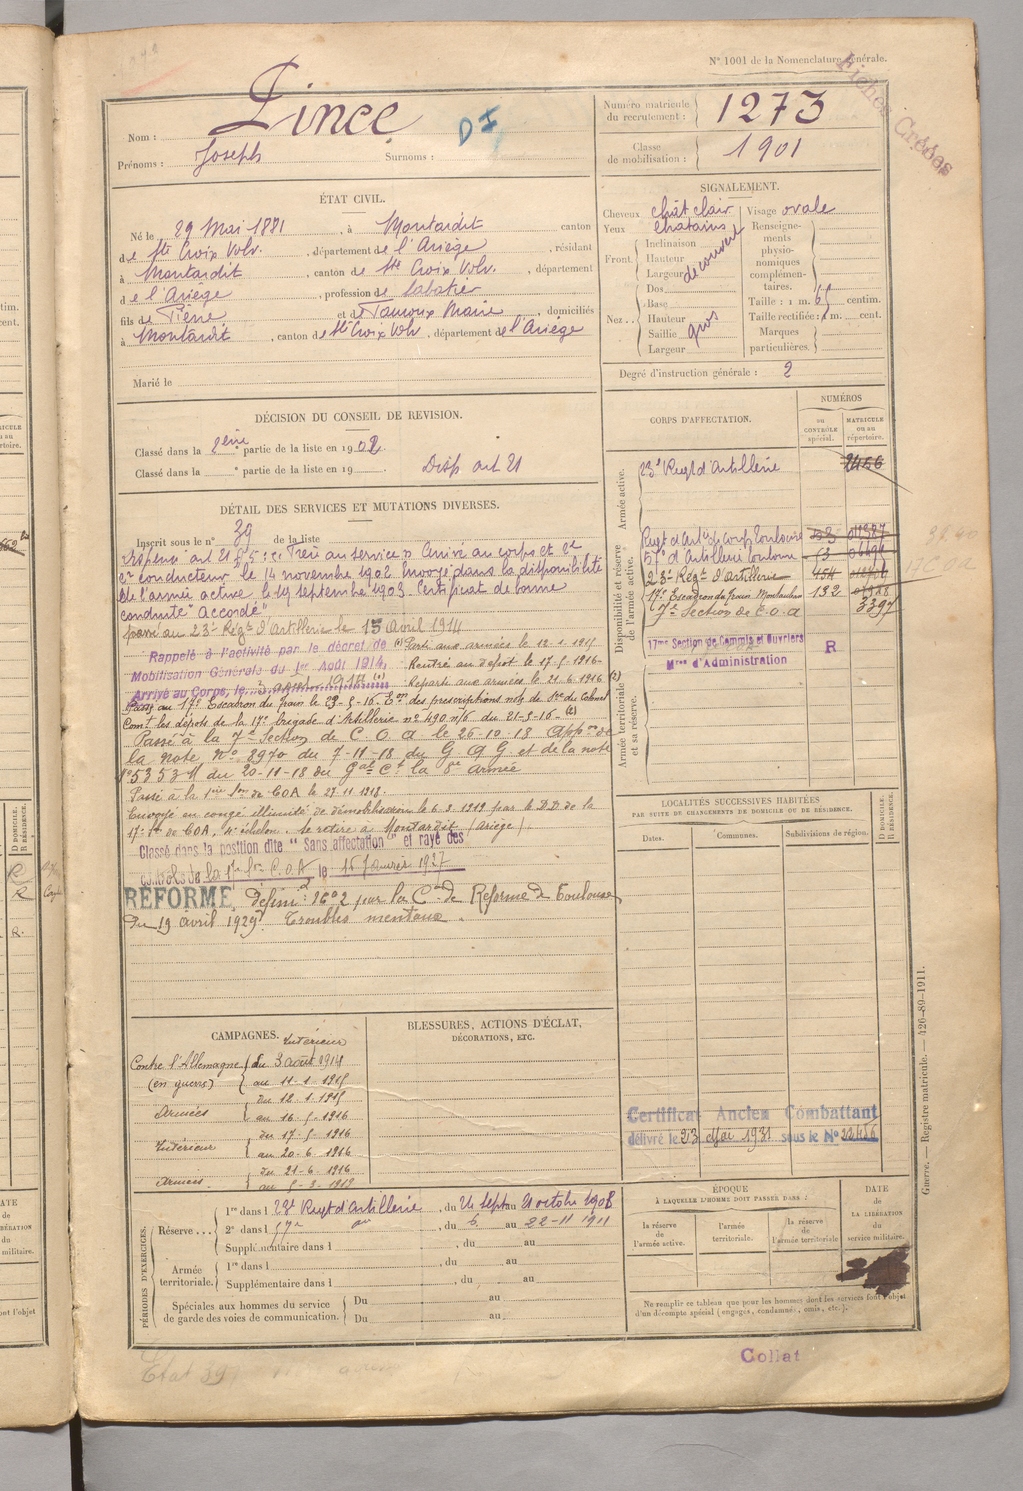 N° 1001 de la Nomenclature générale.
Fiches Créées
Nom : Pince
DI
Prénoms : Joseph Surnoms :
Numéro matricule du recrutement : 1273
Classe de mobilisation : 1901
ÉTAT CIVIL.
Né le 29 Mai 1881, à Montardit canton
de Ste Croix Volv., département de l'Ariège, résidant
à Montardit, canton de Ste Croix Volv., département
de l'Ariège, profession de Sabotier
fils de Pierre et de Tauroux Marie, domiciliés
à Montardit, canton de Ste Croix Volv, département de l'Ariège
Marié le
SIGNALEMENT.
Cheveux chât clair Visage ovale
Yeux chatains
Front : Inclinaison Hauteur Largeur découvert
Nez : Dos Base Hauteur Saillie Largeur gros
Renseignements physionomiques complémentaires.
Taille : 1 m. 65 centim.
Taille rectifiée : 1 m. cent.
Marques particulières.
Degré d'instruction générale : 2
DÉCISION DU CONSEIL DE REVISION.
Classé dans la 2ème partie de la liste en 1902.
Classé dans la ° partie de la liste en 19 Disp art 21
DÉTAIL DES SERVICES ET MUTATIONS DIVERSES.
Inscrit sous le n° 39 de la liste
art 21 au service Arrivé au corps et 2e
cr conducteur le 14 novembre 1902. Envoyé dans la disponibilité
de l'armée active le 19 septembre 1903. Certificat de bonne
conduite "Accordé"
passé au 23e Régt d'Artillerie le 15 avril 1914
Rappelé à l'activité par le décret de
Mobilisation Générale du 1er Août 1914,
Arrivé au Corps, le 3 août 1914 (1)
(1) Parti aux armées le 12-1-1915
Rentré au dépot le 17-5-1916
Reparti aux armées le 21-6-1916 (2)
Passé au 17e Escadron du train le 23-5-16 Eon des prescriptions note de Ste du Colonel
Comt les dépots de la 17e brigade d'Artillerie n° 490 n/6 du 21-5-16 (2)
Passé à la 7e Section de C O A le 26-10-18 Appon de
la note n° 8970 du 7-11-18 du G Q G et de la note
n° 5353 du 20-11-18 du Gal Ct la 8e armée
Passé à la 1ère Son de COA le 27.11.1918.
Envoyé en congé illimité de démobilisation le 6.3.1919 par le D.D. de la
17e Son de COA, 4e échelon. Se retire à Montardit (Ariège).
Classé dans la position dite "Sans affectation" et rayé des
contrôles de la 17e Son C.O.A le 15 Janvier 1927
RÉFORMÉ défini f 16° 2 par la Con de Réforme de Toulouse
du 19 Avril 1929 Troubles mentaux.
CORPS D'AFFECTATION.
NUMÉROS
DU CONTRÔLE spécial.
MATRICULE ou au répertoire.
Armée active.
23e Regt d'Artillerie 2456
Disponibilité et réserve de l'armée active.
Regt d'Artie de Corps Toulouse 53
57e d'Artillerie Toulouse 63
23e Régt d'Artillerie 454
17e Escadron du train Montauban 132
7e Section de C.O.A 3397
17me Section de Commis et Ouvriers
Mres d'Administration R
Armée territoriale et sa réserve.
LOCALITÉS SUCCESSIVES HABITÉES
PAR SUITE DE CHANGEMENTS DE DOMICILE OU DE RÉSIDENCE.
Dates. Communes. Subdivisions de région. D DOMICILE. R RÉSIDENCE.
CAMPAGNES.
Contre l'Allemagne (en guerre)
Intérieur du 3 août 1914
au 11-1-1915
Armées du 12-1-1915
au 16-5-1916
Intérieur du 17-5-1916
au 20-6-1916
Armées. du 21-6-1916
au 5-3-1919
BLESSURES, ACTIONS D'ÉCLAT,
DÉCORATIONS, ETC.
Certificat Ancien Combattant
délivré le 23 Mai 1931 sous le N° 22456
PÉRIODES D'EXERCICES.
Réserve... 1re dans l 23e Regt d'Artillerie, du 24 sept au 21 octobre 1908
2e dans l 57e, du 6 au 22-11 1911
Supplémentaire dans l , du au
Armée territoriale. 1re dans l , du au
Supplémentaire dans l , du au
Spéciales aux hommes du service de garde des voies de communication. Du au
Du au
ÉPOQUE
À LAQUELLE L'HOMME DOIT PASSER DANS :
la réserve de l'armée active. l'armée territoriale. la réserve de l'armée territoriale
DATE de LA LIBÉRATION du service militaire.
Ne remplir ce tableau que pour les hommes dont les services font l'objet
d'un décompte spécial (engagés, condamnés, omis, etc.).
Guerre. — Registre matricule. — 426-89-1911.
Collat
Etat 39